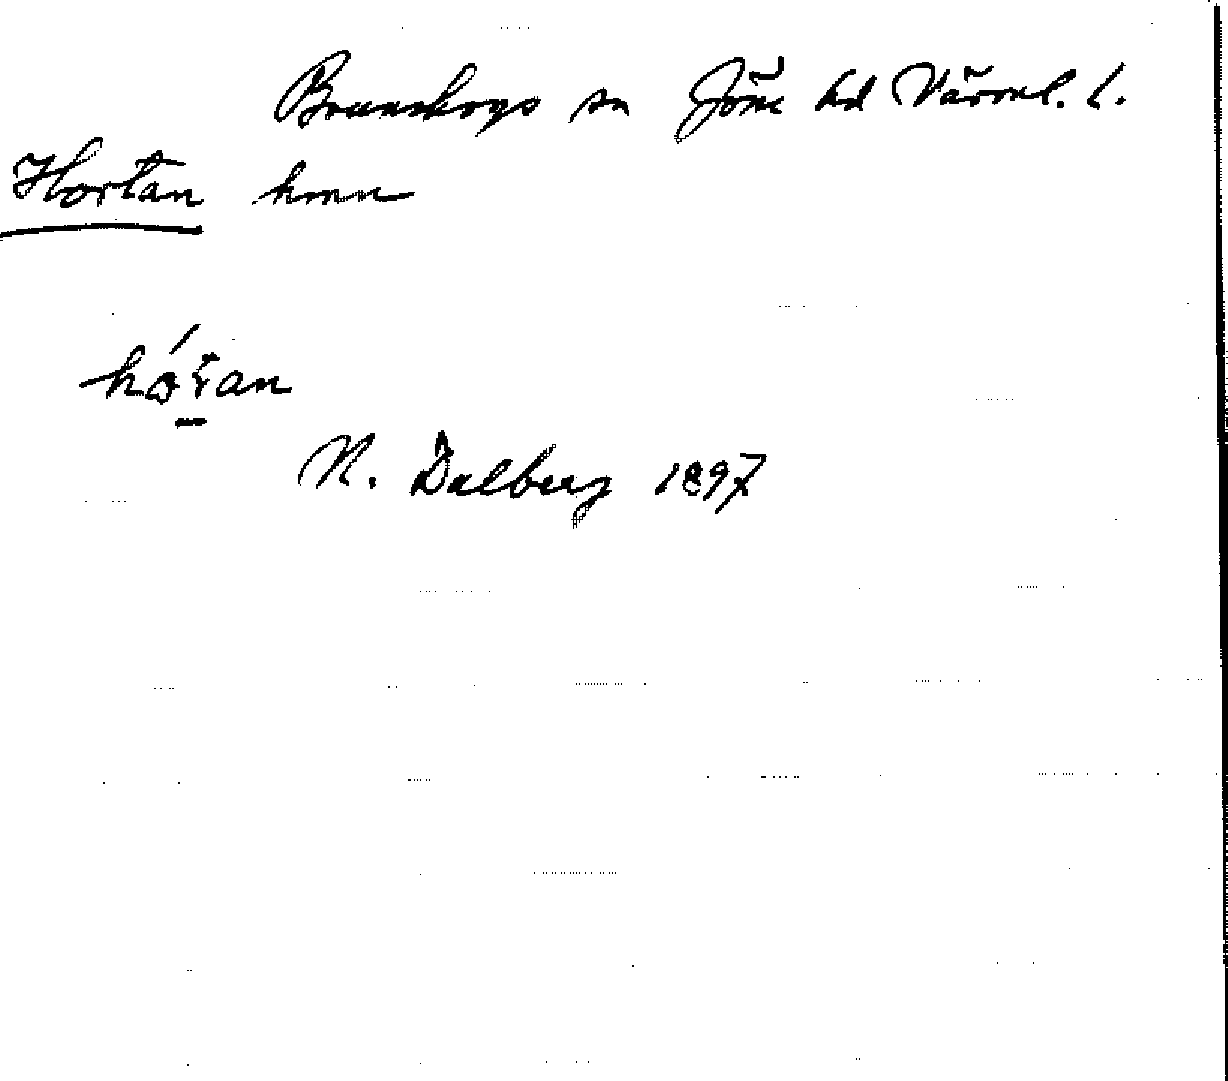 Brunskogs sn Jöss hd Värml. l.
Hortan hmn
N. Dalberg 1897